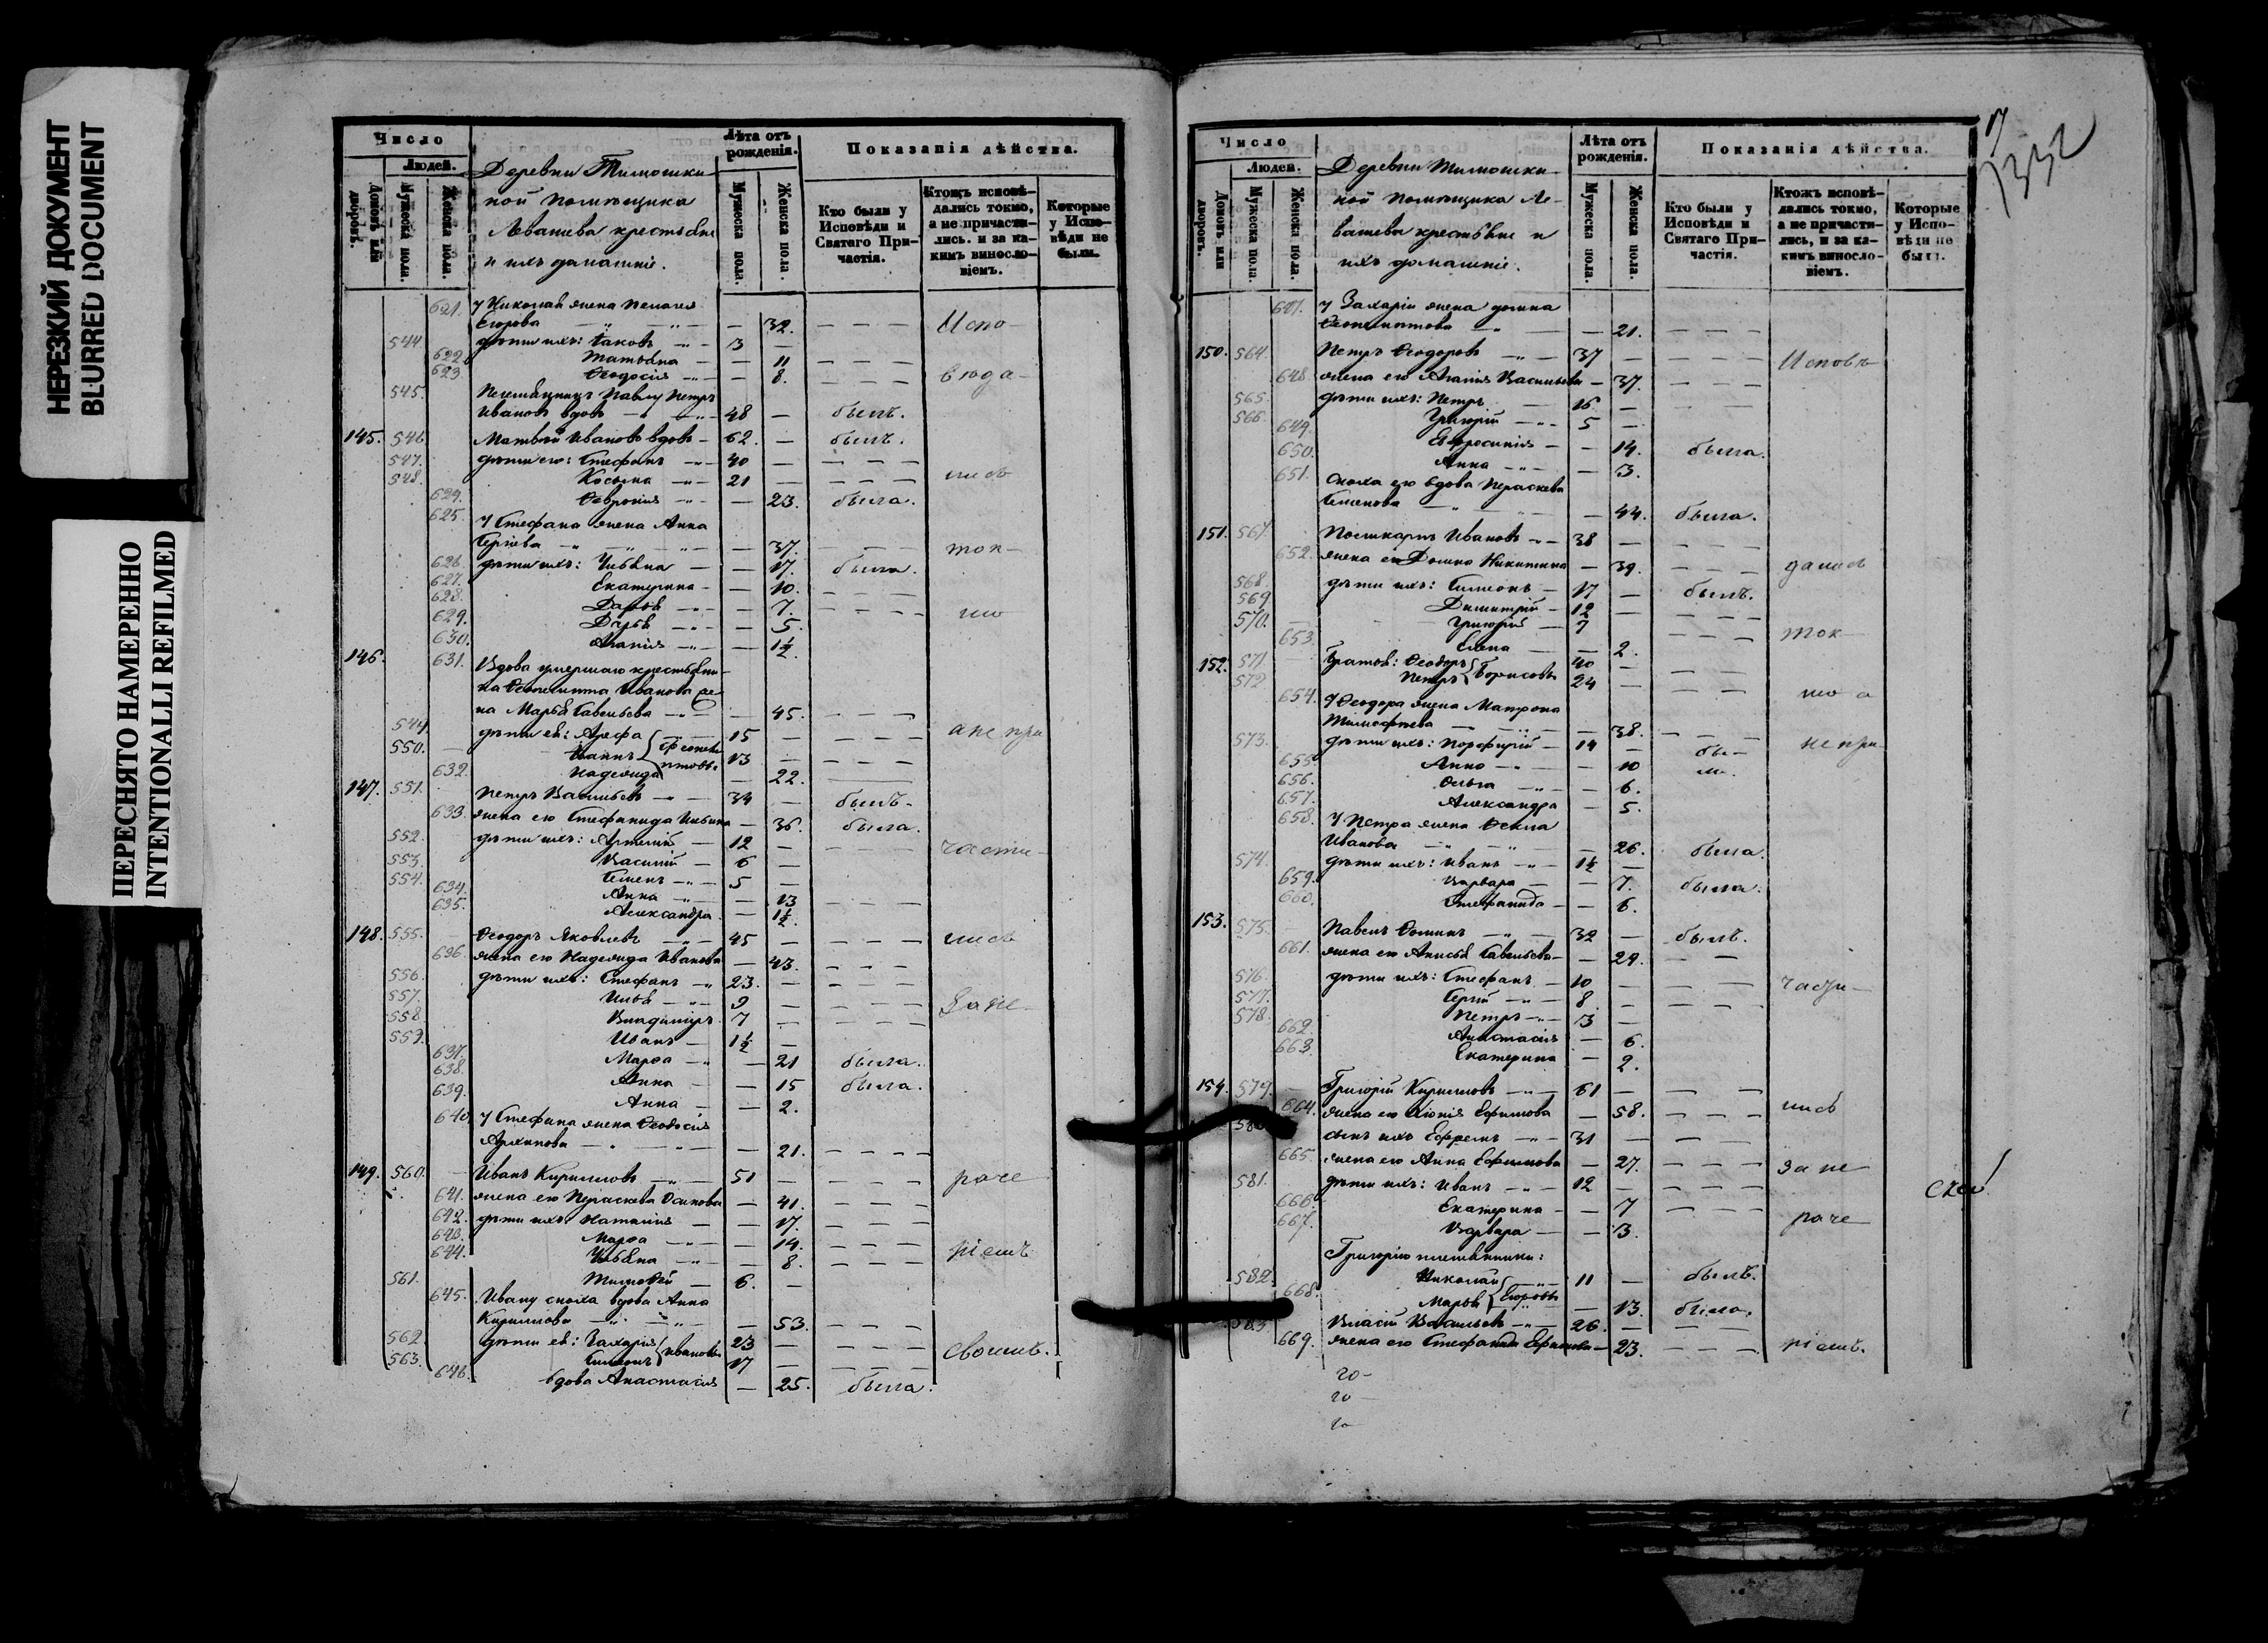 НЕРЕЗКИЙ ДОКУМЕНТ
BLURRED DOCUMENT
ПЕРЕСНЯТО НАМЕРЕННО
INTENTIONALLI REFILMED
Число
Людей.
Домовъ или дворовъ.
Мужеска пола.
Женска пола.
Деревни Тимошки-
ной помѣщика
Левашева крестьяне
и ихъ домашніе.
Лѣта отъ рожденія.
Мужеска пола.
Женска пола.
Показанія дѣйства.
Кто были у Исповѣди и Святаго При-частія.
Ктожъ исповѣ-дались токмо, а не причасти-лись. и за ка-кимъ виносло-віемъ.
Которые у Испо-вѣди не были.
621. У Николая жена Пелагея
Егорова — 32. Испо-
544. дѣти ихъ: Іаковъ 3 —
622. Татьяна — 11
623. Ѳеодосія — 8. вѣда-
545. Племянникъ Павлу Петръ
Ивановъ вдовъ 48 — былъ.
145. 546 Матвѣй Ивановъ вдовъ 62. — былъ.
547. дѣти его: Стефанъ 40 —
548. Косьма 21 — лись
624. Ѳевронія — 23. была.
625. У Стефана жена Анна
Сергіева — 37. ток-
626. дѣти ихъ: Ульяна — 17. была.
627. Екатерина — 10.
628. Дарья — 7. мо
629. Дарья — 5.
630. Агапія — 1½.
146. 631. Вдова умершаго крестьяни-
на Ѳеопемпта Иванова же-
на Марья Савельева — 45.
549 дѣти ея: Арефа 15 — а не при
550. Іоаннъ Ѳеопем-птовы 13
632. Надежда — 22.
147. 551. Петръ Васильевъ 34 — былъ.
633. жена его Стефанида Ильина — 36. была.
552. дѣти ихъ: Артемій 12 — части-
553. Василій 6 —
554. Семенъ 5 —
634. Анна — 13
635. Александра — 1½.
148. 555. Ѳеодоръ Яковлевъ 45 — лись
636. жена его Надежда Иванова — 43.
556. дѣти ихъ: Стефанъ 23. —
557. Илья 9 — за не-
558. Владиміръ 7 —
559. Иванъ 1½ —
637. Марѳа — 21 была.
638. Анна — 15 была.
639. Анна — 2.
640. У Стефана жена Ѳеодосія
Архипова — 21.
149. 560. Иванъ Кирилловъ 51 — раче
641. жена его Параскева Осипова — 41.
642. дѣти ихъ: Наталія — 17.
643. Марѳа — 14.
644. Ульяна — 8. ніемъ
561. Тимоѳей 6. —
645. Ивану сноха вдова Анна
Кириллова — 53.
562. дѣти ея: Захарія Ивановы 23 —
563. Симеонъ 17 — своимъ.
646. вдова Анастасія — 25. была.
17
1332
Число
Людей.
Домовъ или дворовъ.
Мужеска пола.
Женска пола.
Деревни Тимошки-
ной помѣщика Ле-
вашева крестьяне и
ихъ домашніе.
Лѣта отъ рожденія.
Мужеска пола.
Женска пола.
Показанія дѣйства.
Кто были у Исповѣди и Святаго При-частія.
Ктожъ исповѣ-дались токмо, а не причасти-лись, и за ка-кимъ виносло-віемъ.
Которые у Испо-вѣди не были.
647. У Захаріи жена Домна
Ѳеопемптова — 21.
150. 564. Петръ Ѳеодоровъ 37 — Исповѣ-
648 жена его Агапія Васильева — 37.
565. дѣти ихъ: Петръ 16 —
566. Григорій 5 —
649. Евфросинія — 14. была.
650. Анна — 3.
651. Сноха его вдова Параскева
Семенова — 44. была.
151. 567. Поликарпъ Ивановъ 38 —
652. жена его Домна Никитина — 39. дались
568. дѣти ихъ: Симеонъ 17 — былъ.
569 Димитрій 12 —
570. Григорій 7 — ток-
653. Елена — 2.
152. 571 Братья: Ѳеодоръ Борисовы 40 —
572 Петръ 24 — мо а
654. У Ѳеодора жена Матрона
Тимоѳеева — 38.
573. дѣти ихъ: Порфирій 14 — бы- не при-
655. Анна — 10 ли.
656. Ольга — 6.
657. Александра — 5.
658. У Петра жена Ѳекла
Иванова — 26. была.
574. дѣти ихъ: Иванъ 1½ —
659. Варвара — 7. была.
660. Стефанида — 6.
153. 575. Павелъ Ѳоминъ 32 — былъ.
661. жена его Анисья Савельева — 29.
576. дѣти ихъ: Стефанъ 10 — части-
577. Сергій 8 —
578. Петръ 3 —
662. Анастасія — 6.
663. Екатерина — 2.
154. 579. Григорій Кирилловъ 61 —
664. жена его Хіонія Ефимова — 58. лись
580 сынъ ихъ Ефремъ 31 —
665. жена его Анна Ефимова — 27. за не
581. дѣти ихъ: Иванъ 12 —
666. Екатерина — 7
667. Варвара — 3. раче
Григорію племянники:
582. Николай Егоровы 11 — былъ.
668. Марья — 13. была.
583 Власій Васильевъ 26. —
669. жена его Стефанида Ефимова — 23. ніемъ.